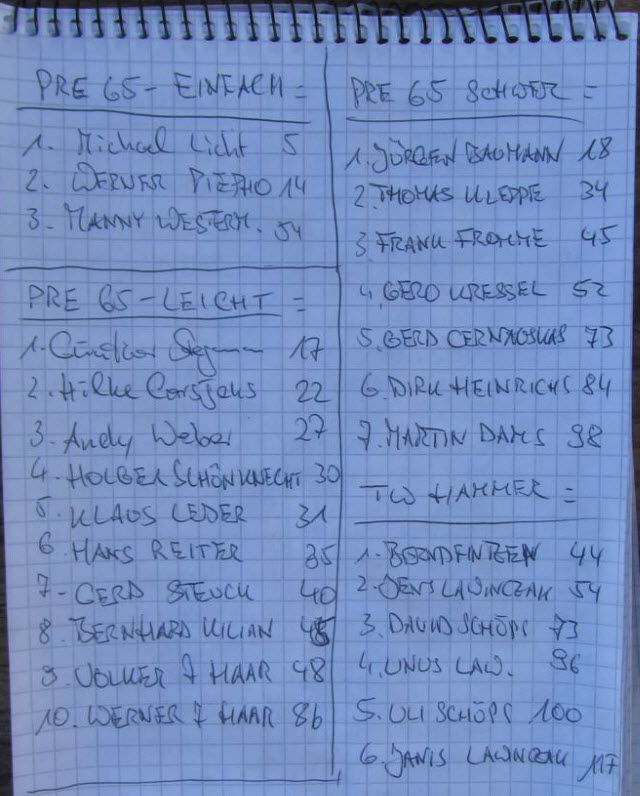 PRE 65 - EINFACH =
1. Michael Licht 5
2. WERNER PIEPHO 14
3. MANNY WESTERM. 54
PRE 65 - LEICHT =
1. 17
2. Hilke Corssjens 22
3. Andy Weber 27
4. HOLGER SCHÖNKNECHT 30
5. KLAUS LEDER 31
6. HANS REITER 35
7. GERD STEUCK 40
8. BERNHARD KILIAN
9. VOLKER 7 HAAR 48
10. WERNER 7 HAAR 86
PRE 65 SCHWER =
1. JÜRGEN BAUMANN 18
2. THOMAS KLEPPE 34
3 FRANK FROMME 45
4. GERO KRESSEL 52
5. GERD 73
6. DIRK HEINRICHS 84
7. MARTIN DAMS 98
TW HAMMER =
1. BERND 44
2. JENS LAWNCZAK 54
3. DAVID SCHÖPS 73
4. LINUS LAW. 96
5. ULI SCHÖPS 100
6. JANIS LAWNCZAK 117